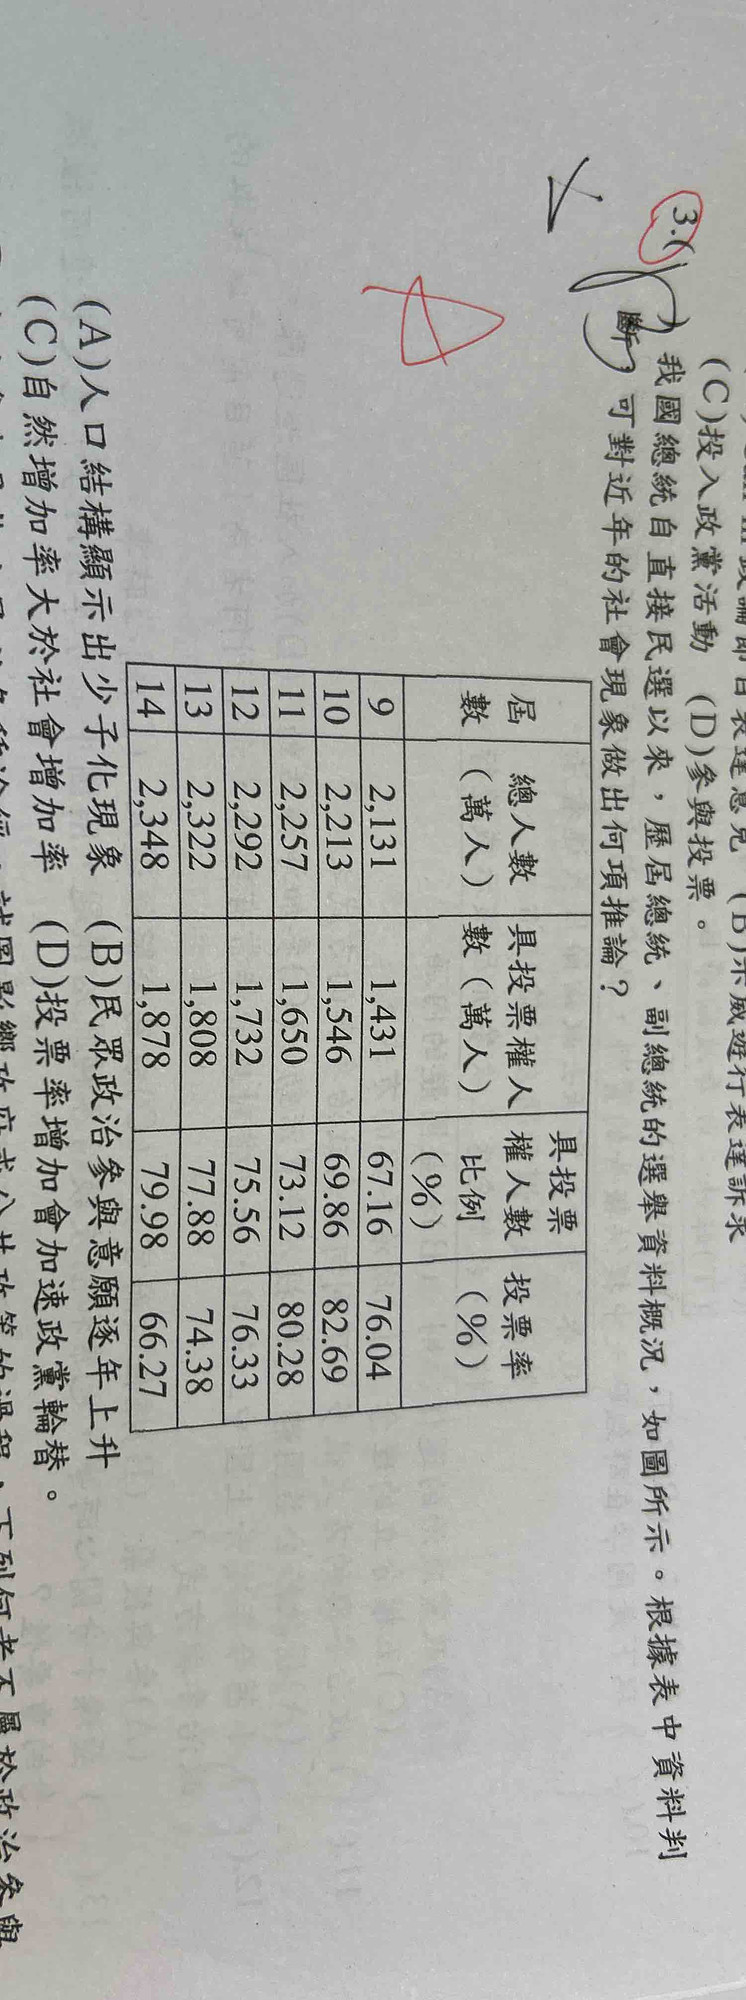 (C)投入政黨活動 (D)參與投票。
3.( )我國總統自直接民選以來，歷屆總統、副總統的選舉資料概況，如圖所示。根據表中資料判
斷，可對近年的社會現象做出何項推論？
屆數 總人數（萬人） 具投票權人數（萬人） 具投票權人數比例（%） 投票率（%）
9 2,131 1,431 67.16 76.04
10 2,213 1,546 69.86 82.69
11 2,257 1,650 73.12 80.28
12 2,292 1,732 75.56 76.33
13 2,322 1,808 77.88 74.38
14 2,348 1,878 79.98 66.27
A
(A)人口結構顯示出少子化現象 (B)民眾政治參與意願逐年上升
(C)自然增加率大於社會增加率 (D)投票率增加會加速政黨輪替。